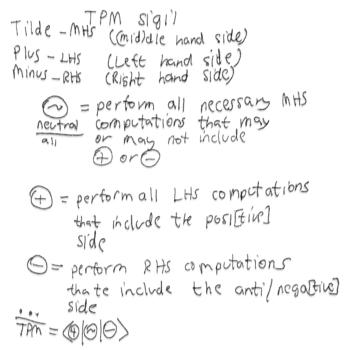 TPM sigil
Tilde - MHS ((mid)dle hand side)
Plus - LHS (Left hand side)
Minus - RHS (Right hand side)
⊝ = perform all necessary MHS
neutral computations that may
all or may not include
⊕ or ⊖
⊕ = perform all LHS computations
that include the posi[tive]
side
⊖ = perform RHS computations
thate include the anti/nega[tive]
side
... 
TPM = <⊕|~|⊖>